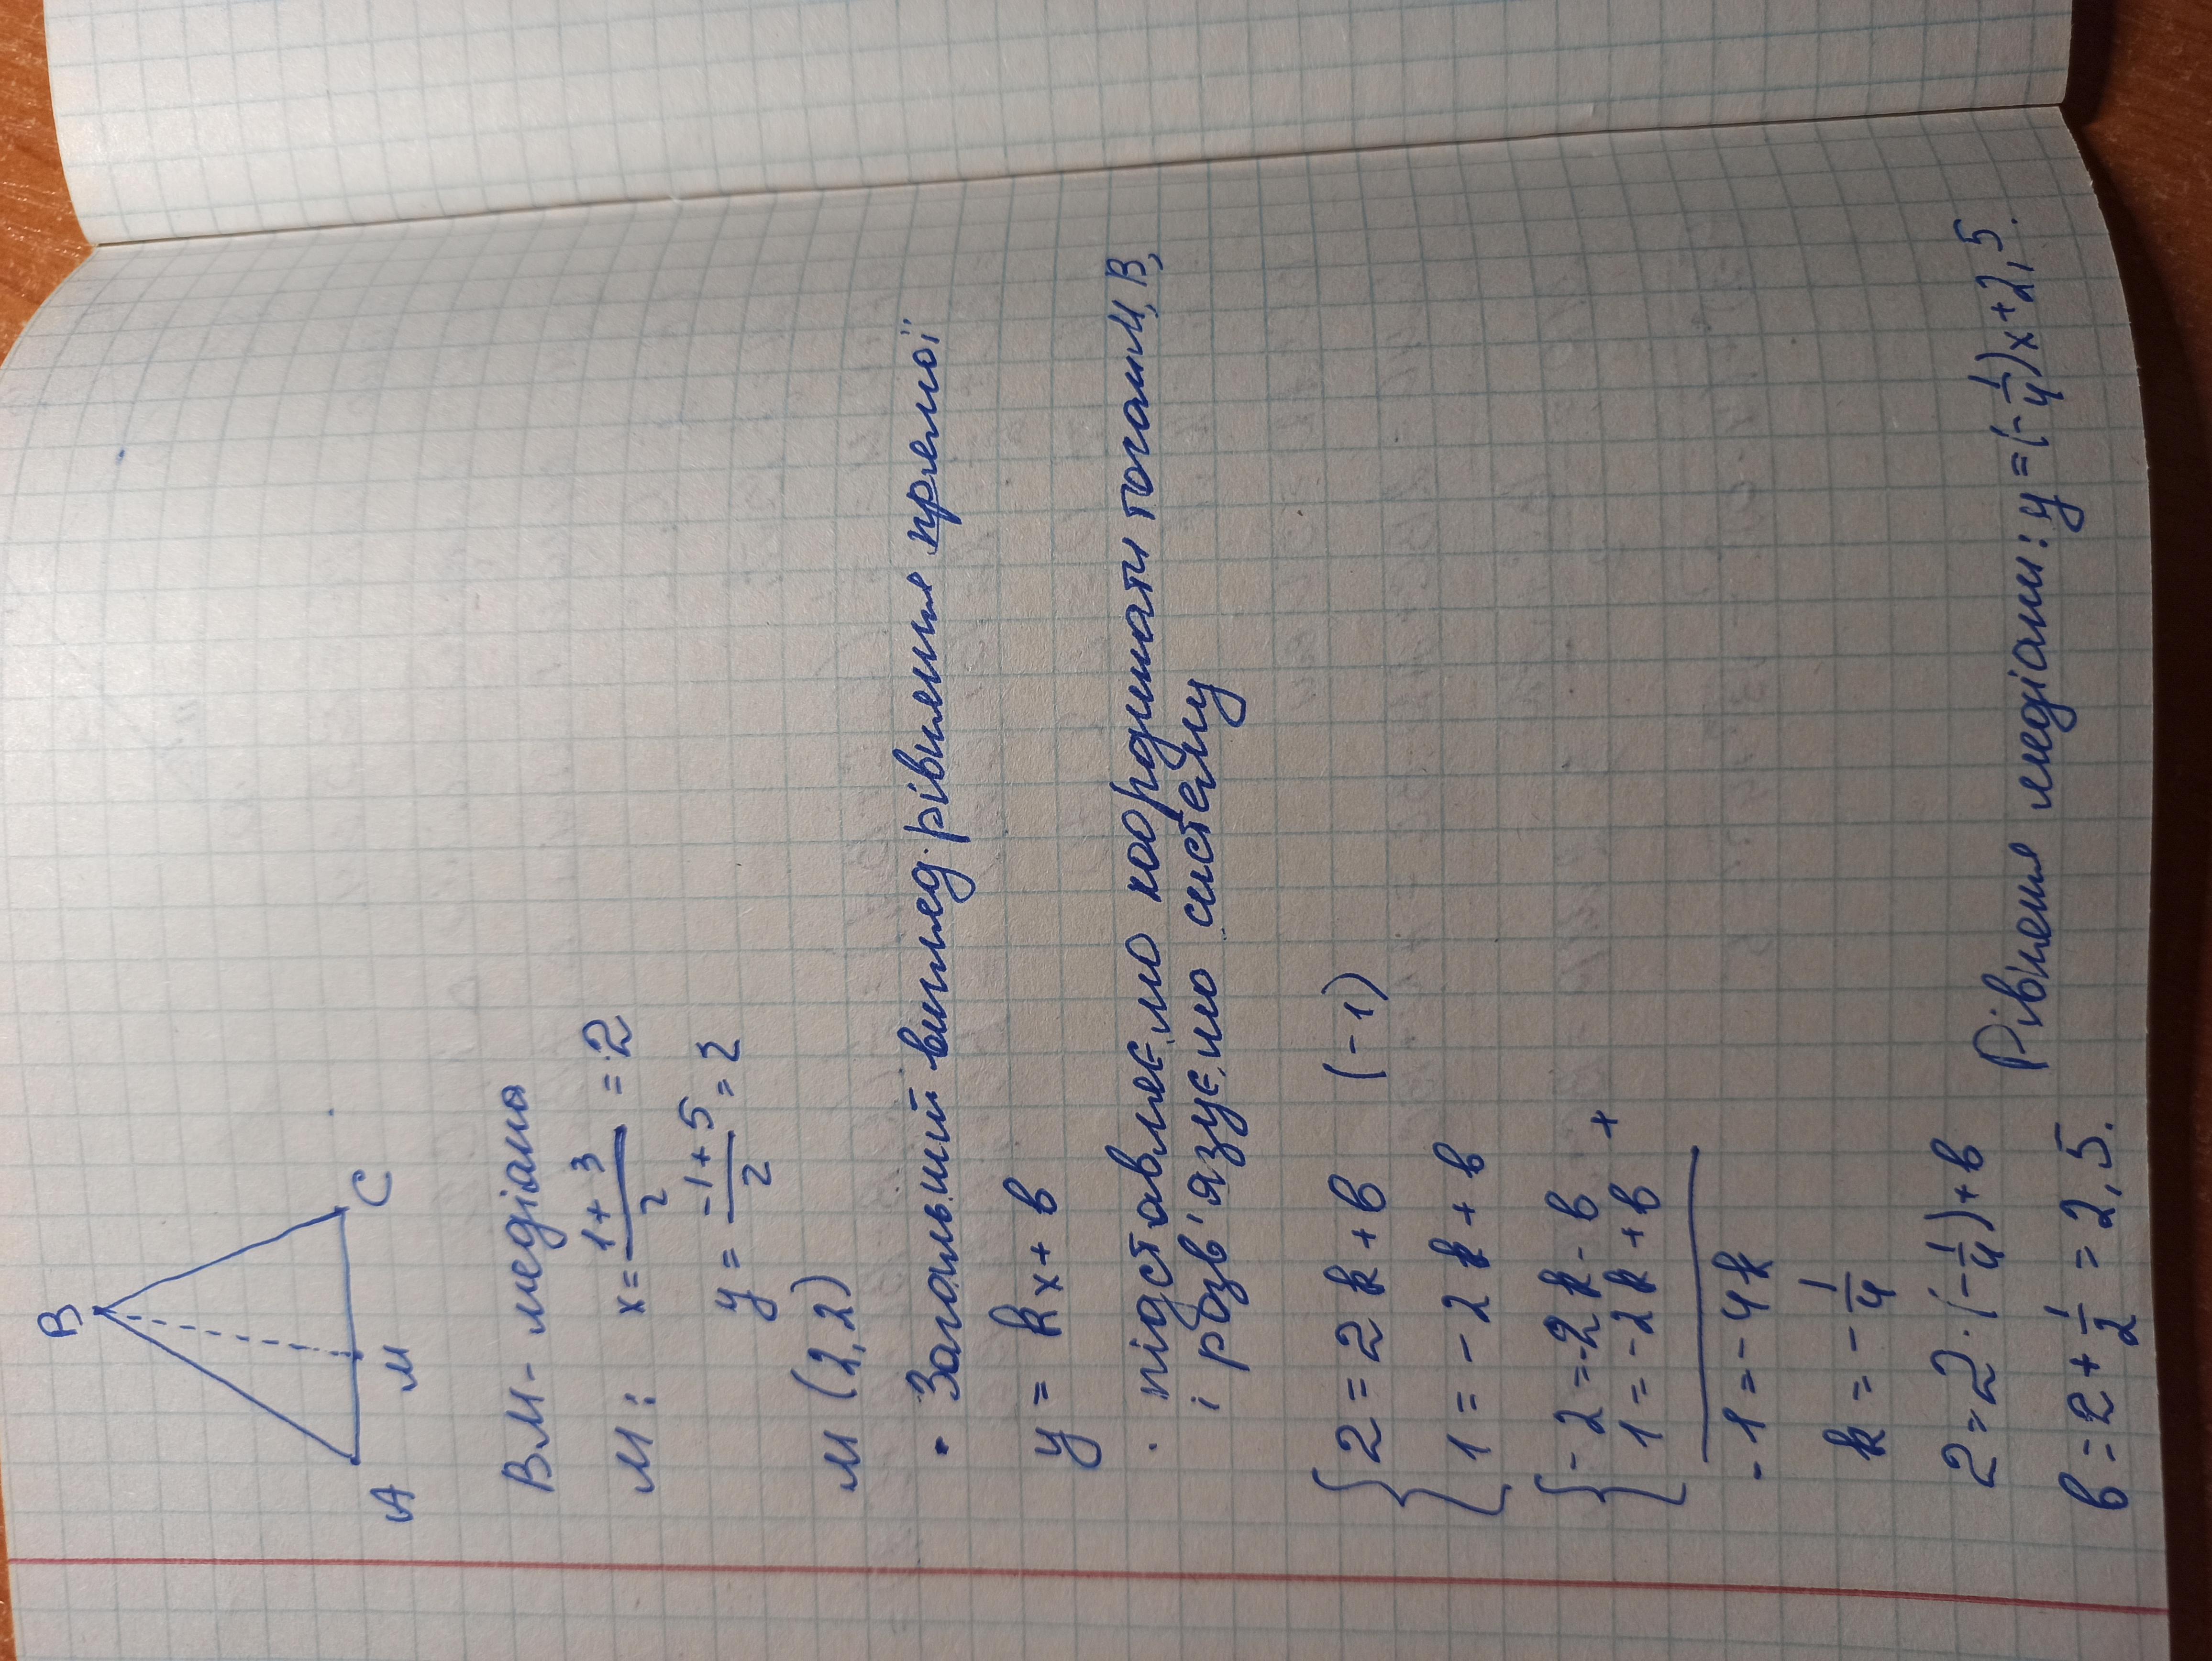 B
A M C
BM - медіана
M: x = \frac{1+3}{2} = 2
y = \frac{-1+5}{2} = 2
M (2,2)
• Загальний вигляд рівняння прямої
y = kx + b
• підставляємо координати точок M, B,
і розв'язуємо систему
{ 2 = 2k + b (-1)
1 = -2k + b
{ -2 = -2k - b
1 = -2k + b +
-1 = -4k
k = -\frac{1}{4}
2 = 2 · (-\frac{1}{4}) + b
b = 2 + \frac{1}{2} = 2,5. Рівняння медіани: y = (-\frac{1}{4})x + 2,5.